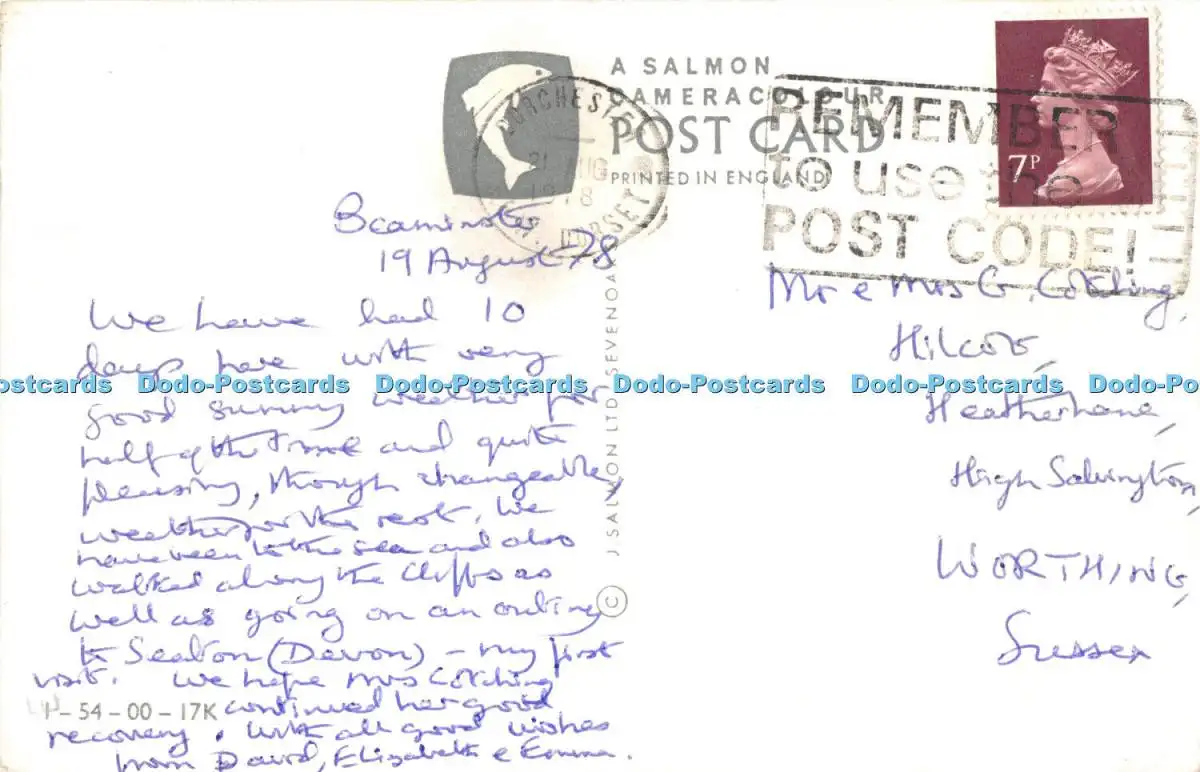 A SALMON
CAMERACOLOUR
POST CARD
PRINTED IN ENGLAND
DORCHESTER
AUG
1978
DORSET
REMEMBER
to use the
POST CODE!
7P
Beaminster
19 August 78
We have had 10
days here with very
good sunny weather for
half of the time and quite
pleasing, though changeable,
weather for the rest. We
have been to the sea and also
walked along the cliffs as
well as going on an outing
to Seaton (Devon) – my first
visit. We hope Mrs Cotching
continued her good
recovery. With all good wishes
from David, Elizabeth & Emma.
1-54-00-17K
© J SALMON LTD SEVENOA
Mr & Mrs G. Cotching,
Hilcote,
Heatherlane,
High Salvington,
WORTHING,
Sussex
ostcards Dodo-Postcards Dodo-Postcards Dodo-Postcards Dodo-Postcards Dodo-Po